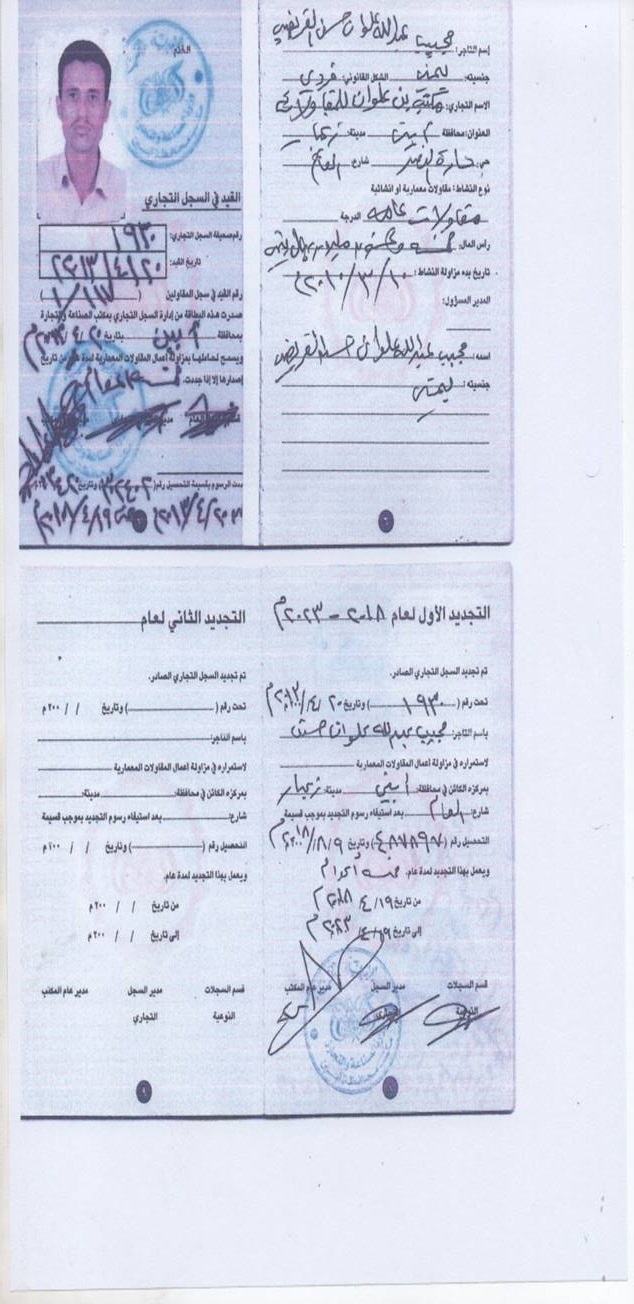 إسم التاجر: مجيب عبدالله علوان حسن القريضي
جنسيته: يمني الشكل القانوني: فردي
الاسم التجاري: مكتب بن علوان للمقاولات
العنوان: محافظة أبين مدينة: زنجبار
حي: حارة النصر شارع: العام
نوع النشاط: مقاولات معمارية أو انشائية
مقاولات عامه الدرجة
رأس المال: خمسه وخمسون مليون ريال يمني
تاريخ بدء مزاولة النشاط: ٢٠١٠/٣/١٠م
المدير المسؤول:
اسمه: مجيب عبدالله علوان حسن القريضي
جنسيته: يمني
الختم
القيد في السجل التجاري
رقم صحيفة السجل التجاري: ١٩٣٠
تاريخ القيد: ٢٠١٣/٤/٢٠
رقم القيد في سجل المقاولين (١/١١٧)
صدرت هذه البطاقة من إدارة السجل التجاري بمكتب الصناعة والتجارة
بمحافظة أبين بتاريخ ٢٠١٣/٤/٢٠م
ويسمح لحاملها بمزاولة أعمال المقاولات المعمارية لمدة من تاريخ
إصدارها إلا إذا جددت.
الرسوم بقسيمة التحصيل رقم( وتاريخ
٢٠١٣/٤/٢٠ ٢٠١٨/٤/١٩م
التجديد الأول لعام ٢٠١٨ - ٢٠٢٣م
تم تجديد السجل التجاري الصادر.
تحت رقم (١٩٣٠) وتاريخ ٢٠/٤/٢٠١٣م
باسم التاجر: مجيب عبدالله علوان حسن
لاستمراره في مزاولة اعمال المقاولات المعمارية
بمركزه الكائن في محافظة: أبين مدينة: زنجبار
شارع: العام بعد استيفاء رسوم التجديد بموجب قسيمة
التحصيل رقم (٤٨٧٨٩٧) وتاريخ ٩/٨/٢٠١٨م
ويعمل بهذا التجديد لمدة عام. خمسه أعوام
من تاريخ ١٩/٤/٢٠١٨م
إلى تاريخ ١٩/٤/٢٠٢٣م
قسم السجلات مدير السجل مدير عام المكتب
النوعية التجاري
التجديد الثاني لعام
تم تجديد السجل التجاري الصادر.
تحت رقم ( ) وتاريخ / / ٢٠٠م
باسم التاجر:
لاستمراره في مزاولة اعمال المقاولات المعمارية
بمركزه الكائن في محافظة: مدينة:
شارع: بعد استيفاء رسوم التجديد بموجب قسيمة
التحصيل رقم ( ) وتاريخ / / ٢٠٠م
ويعمل بهذا التجديد لمدة عام.
من تاريخ / / ٢٠٠م
إلى تاريخ / / ٢٠٠م
قسم السجلات مدير السجل مدير عام المكتب
النوعية التجاري